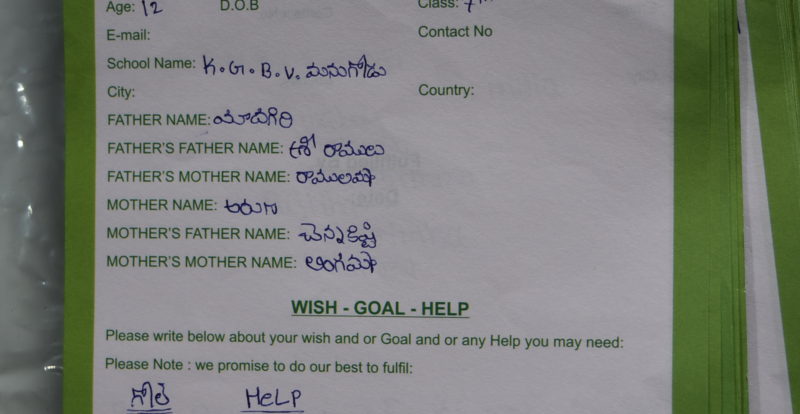 Age: 12 D.O.B Class: 7th
E-mail: Contact No
School Name: K.G.B.V. మనుగోడు
City: Country:
FATHER NAME: యాదగిరి
FATHER'S FATHER NAME: శ్రీ రాములు
FATHER'S MOTHER NAME: రాములమ్మ
MOTHER NAME:
MOTHER'S FATHER NAME: చెన్నకిష్టి
MOTHER'S MOTHER NAME: లింగమ్మ
WISH - GOAL - HELP
Please write below about your wish and or Goal and or any Help you may need:
Please Note : we promise to do our best to fulfil:
HeLP